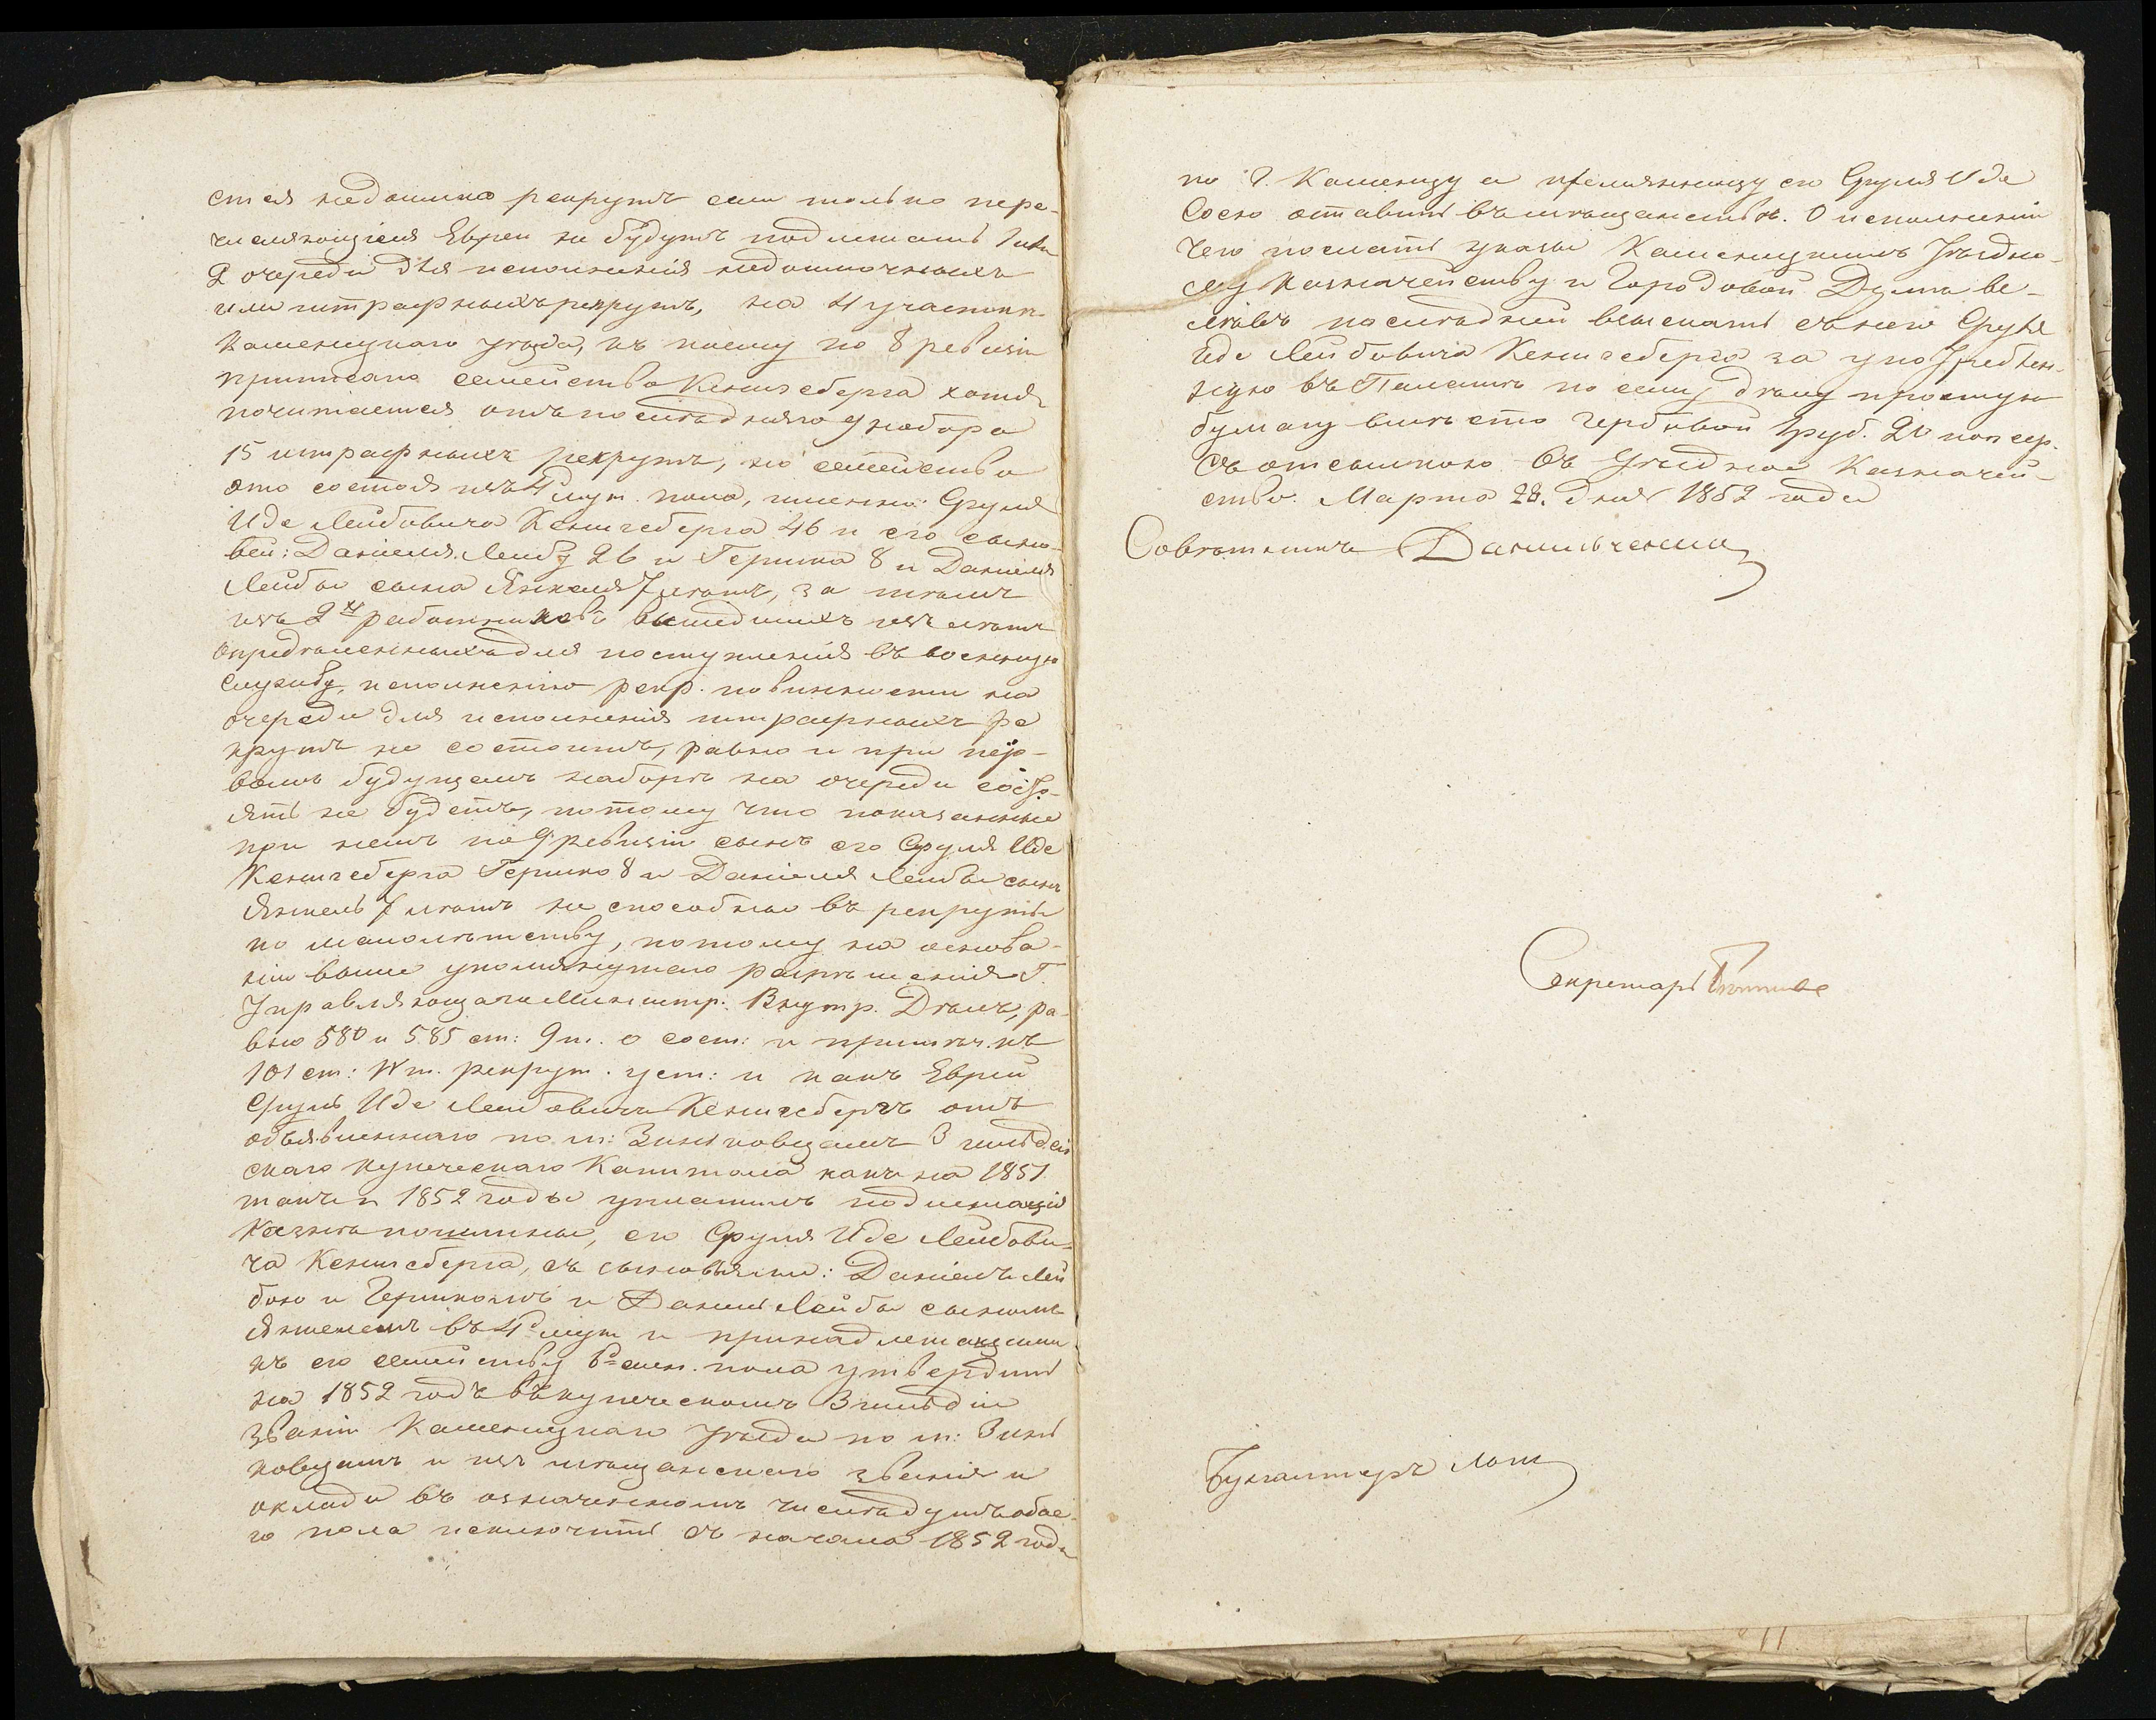 стся недоимка рекрутъ если только пере-
числяющіеся Евреи не будутъ подлежать 1 или
2 очереди для исполненія недоимочныхъ
или штрафныхъ рекрутъ, на 4 участкѣ
Каменецкаго уѣзда, къ коему по 8 ревизіи
приписано семейство Кенигсберга хотя
почитается отъ послѣдняго 9 набора
15 штрафныхъ рекрутъ, но семейство
это состоя изъ 4 муж. пола, именно: Сруля
Иде Лейбовича Кенигсберга 46 и его сыно-
вей: Даніеля Лейбу 26 и Гершка 8 и Даніеля
Лейбы сына Янкеля 7 лѣтъ, за тѣмъ
изъ 2х работниковъ вышедшихъ изъ лѣтъ
опредѣленныхъ для поступленія въ военную
службу, исполненію рекр. повинности на
очереди для исполненія штрафныхъ ре
крутъ не состоитъ, равно и при пер-
вомъ будущемъ наборѣ на очереди состо-
ять не будетъ, потому что показанные
при немъ по 9 ревизіи сынъ его Сруля Иде
Кенигсберга Гершко 8 и Даніеля Лейбы сынъ
Янкель 7 лѣтъ не способны въ рекруты
по малолѣтству, потому на основа-
ніи выше упомянутаго разрѣшенія Г.
Управляющаго Министр: Внутр. Дѣлъ, ра-
вно 580 и 585 ст: 9 т. о сост: и примѣч. къ
101 ст: IV т. рекрут. уст: и какъ Еврей
Сруль Иде Лейбовичъ Кенигсбергъ отъ
объявленнаго по м: Зиньковцамъ 3 гильдей
скаго купеческаго Капитала какъ на 1851
такъ и 1852 годы уплатилъ подлежащія
Казнѣ пошлины, его Сруля Иде Лейбови-
ча Кенигсберга, съ сыновьями: Даніелъ Лей
бою и Гершкомъ и Даніилъ Лейбы сыномъ
Янкелемъ въ 4 муж и принадлежащими
къ его семейству 6 жен. пола утвердить
на 1852 годъ въ купеческомъ 3 гильдіи
званіи Каменецкаго уѣзда по м: Зинь
ковцамъ и изъ мѣщанскаго званія и
оклада въ означенномъ числѣ душъ обое-
го пола исключить съ начала 1852 года
по г. Каменцу а племянницу его Сруля Иде
Сосю оставить въ мѣщанствѣ. О исполненіи
чего послать указы Каменецкимъ Уѣздно-
му Казначейству и Городовой Думѣ ве-
лѣвъ послѣдней взыскать съ него Сруля
Иде Лейбовича Кенигсберга за употреблен-
ную въ Палатѣ по сему дѣлу простую
бумагу вмѣсто гербовой 1 руб. 20 коп сер.
съ отсылкою въ Уѣздное Казначей-
ство. Марта 28. дня 1852 года
Совѣтникъ Данильченко
Секретарь
Бухгалтеръ